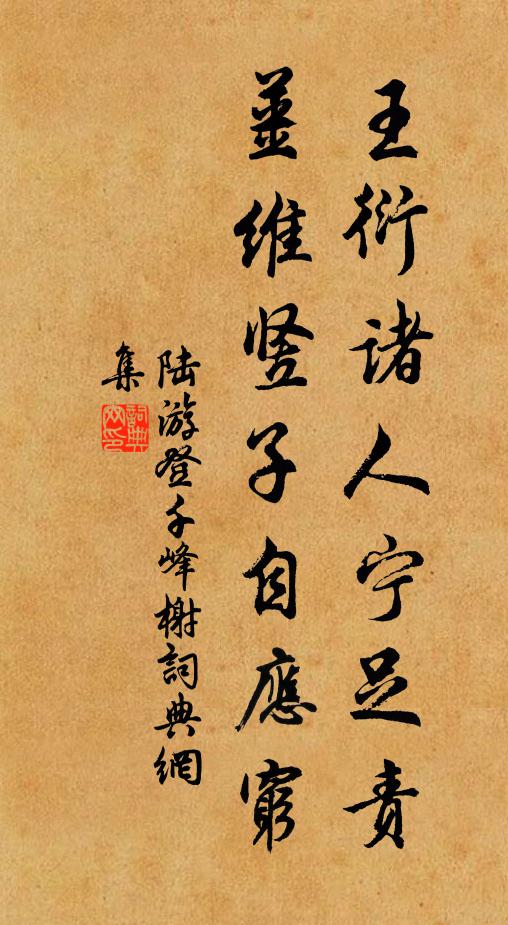 王衍诸人宁足责
薑维竖子自應窮
陆游登千峰榭詞典網
集
詞典
网印